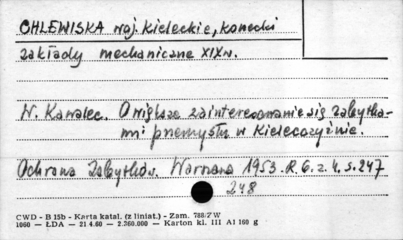 CHLEWISKA woj. kieleckie, konecki
zakłady mechaniczne XIX w.
W. Kawalec. O większe zainteresowanie się zabytka-
mi przemysłu w Kielecczyźnie.
Ochrona Zabytków. Warszawa 1953. R. 6. z. 4. s. 247
248
CWD - B 15b - Karta katal. (z liniat.) - Zam. 788/ZW
1060 — ŁDA — 21 4.60 — 2.260.000 — Karton kl. III A1 160 g